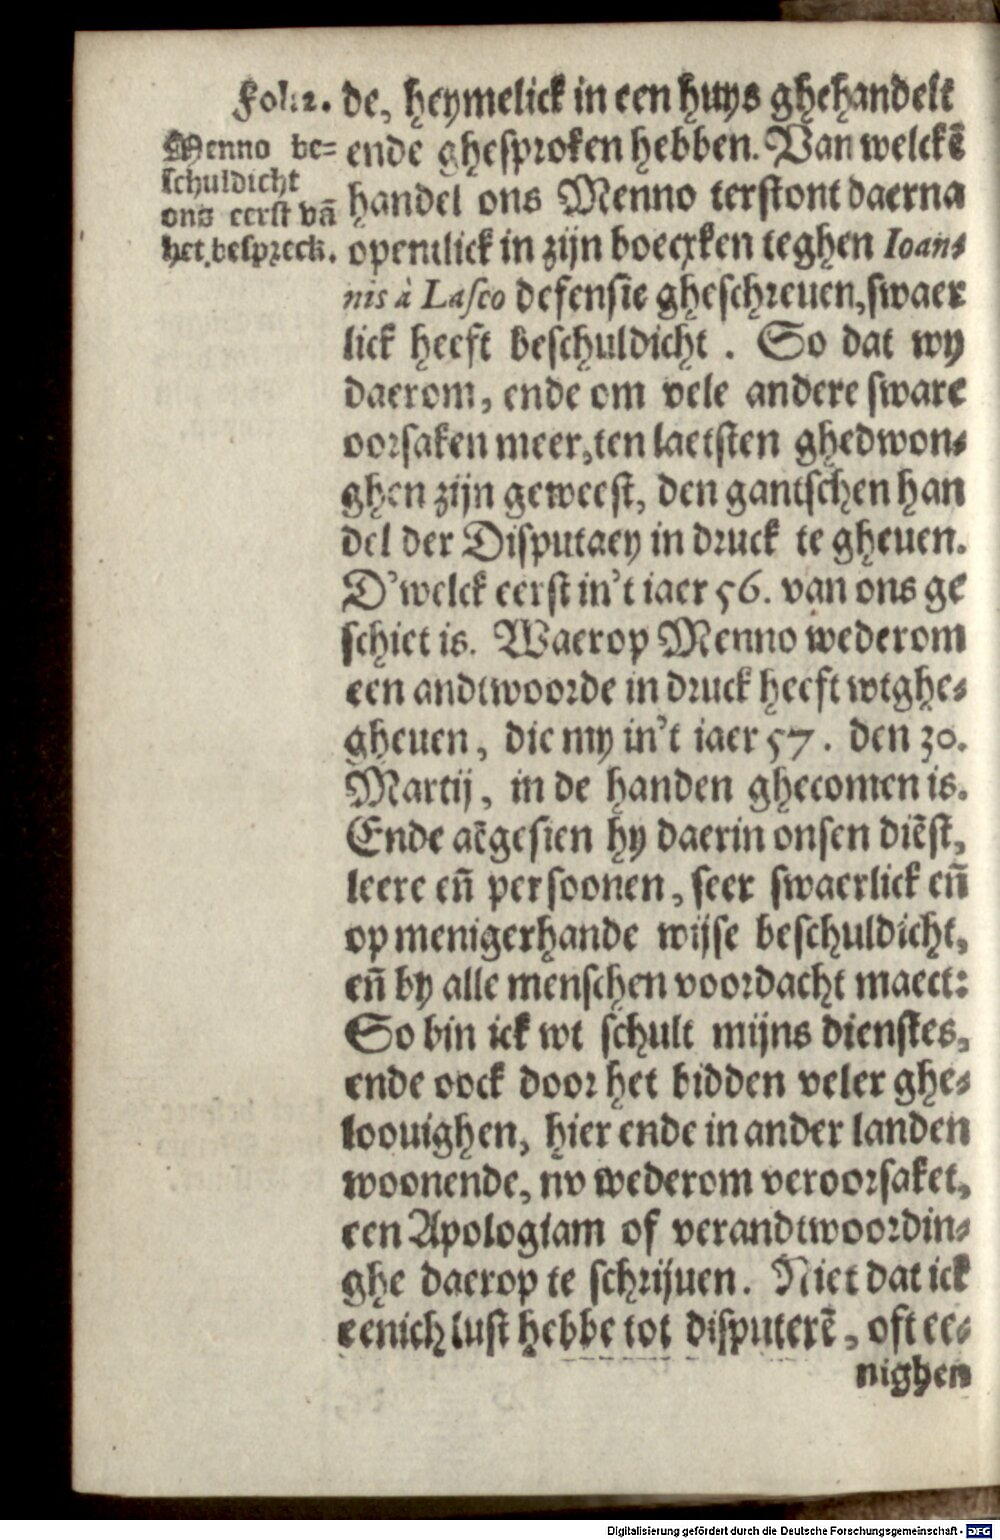 Fol.2.
Menno be-
schuldicht
ons eerst vā
het bespreck.
de, heymelick in een huys ghehandelt
ende ghesproken hebben. Van welckē
handel ons Menno terstont daerna
opentlick in zijn boecxken teghen Ioan-
nis à Lasco defensie gheschreuen, swaer
lick heeft beschuldicht. So dat wy
daerom, ende om vele andere sware
oorsaken meer, ten laetsten ghedwon-
ghen zijn geweest, den gantschen han
del der Disputaey in druck te gheuen.
D'welck eerst in't iaer 56. van ons ge
schiet is. Waerop Menno wederom
een andtwoorde in druck heeft wtghe-
gheuen, die my in't iaer 57. den 30.
Martij, in de handen ghecomen is.
Ende aēgesien hy daerin onsen diēst,
leere eñ persoonen, seer swaerlick eñ
op menigerhande wijse beschuldicht,
eñ by alle menschen voordacht maect:
So bin ick wt schult mijns dienstes,
ende oock door het bidden veler ghe-
loouighen, hier ende in ander landen
woonende, nv wederom veroorsaket,
een Apologiam of verandtwoordin-
ghe daerop te schrijuen. Niet dat ick
eenich lust hebbe tot disputerē, oft ee-
nighen
Digitalisierung gefördert durch die Deutsche Forschungsgemeinschaft - DFG